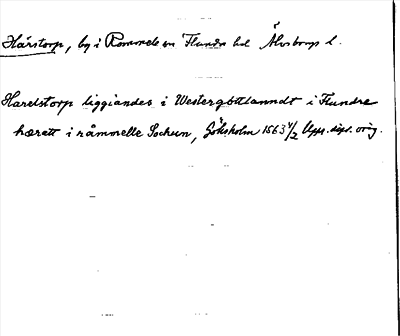 Härstorp, by i Rommele sn Flundre hd Älvsborgs l.
Harelstorp liggiandes i Westergöttlanndt i Flundre
hærett i råmmelle Sochun, Göksholm 1563 4/2 Upps. dipl. orig.